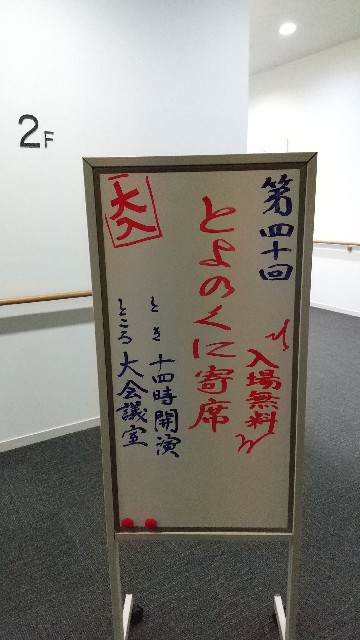 2F
第四十回
入場無料
とよのくに寄席
大入
とき 十四時開演
ところ 大会議室